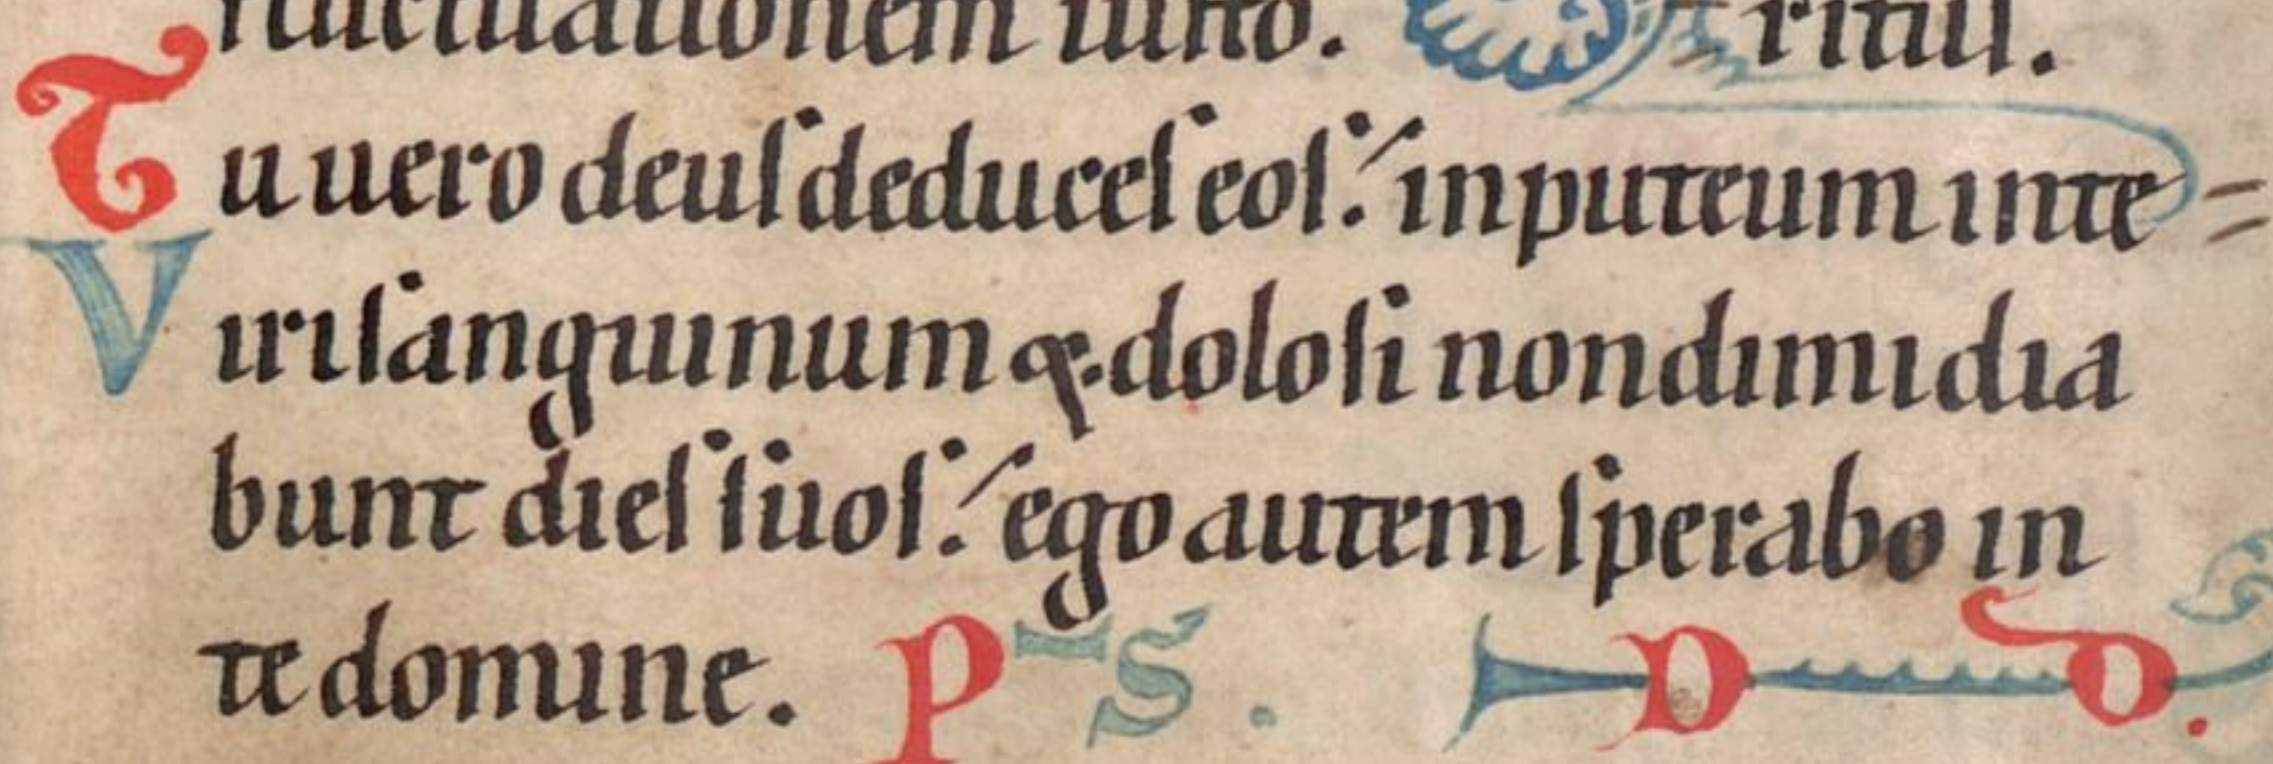 fluctuationem iusto. = ritus.
Tu uero deus deduces eos: in puteum inte =
Viri sanguinum & dolosi non dimidia
bunt dies suos: ego autem sperabo in
te domine. PS. D D.